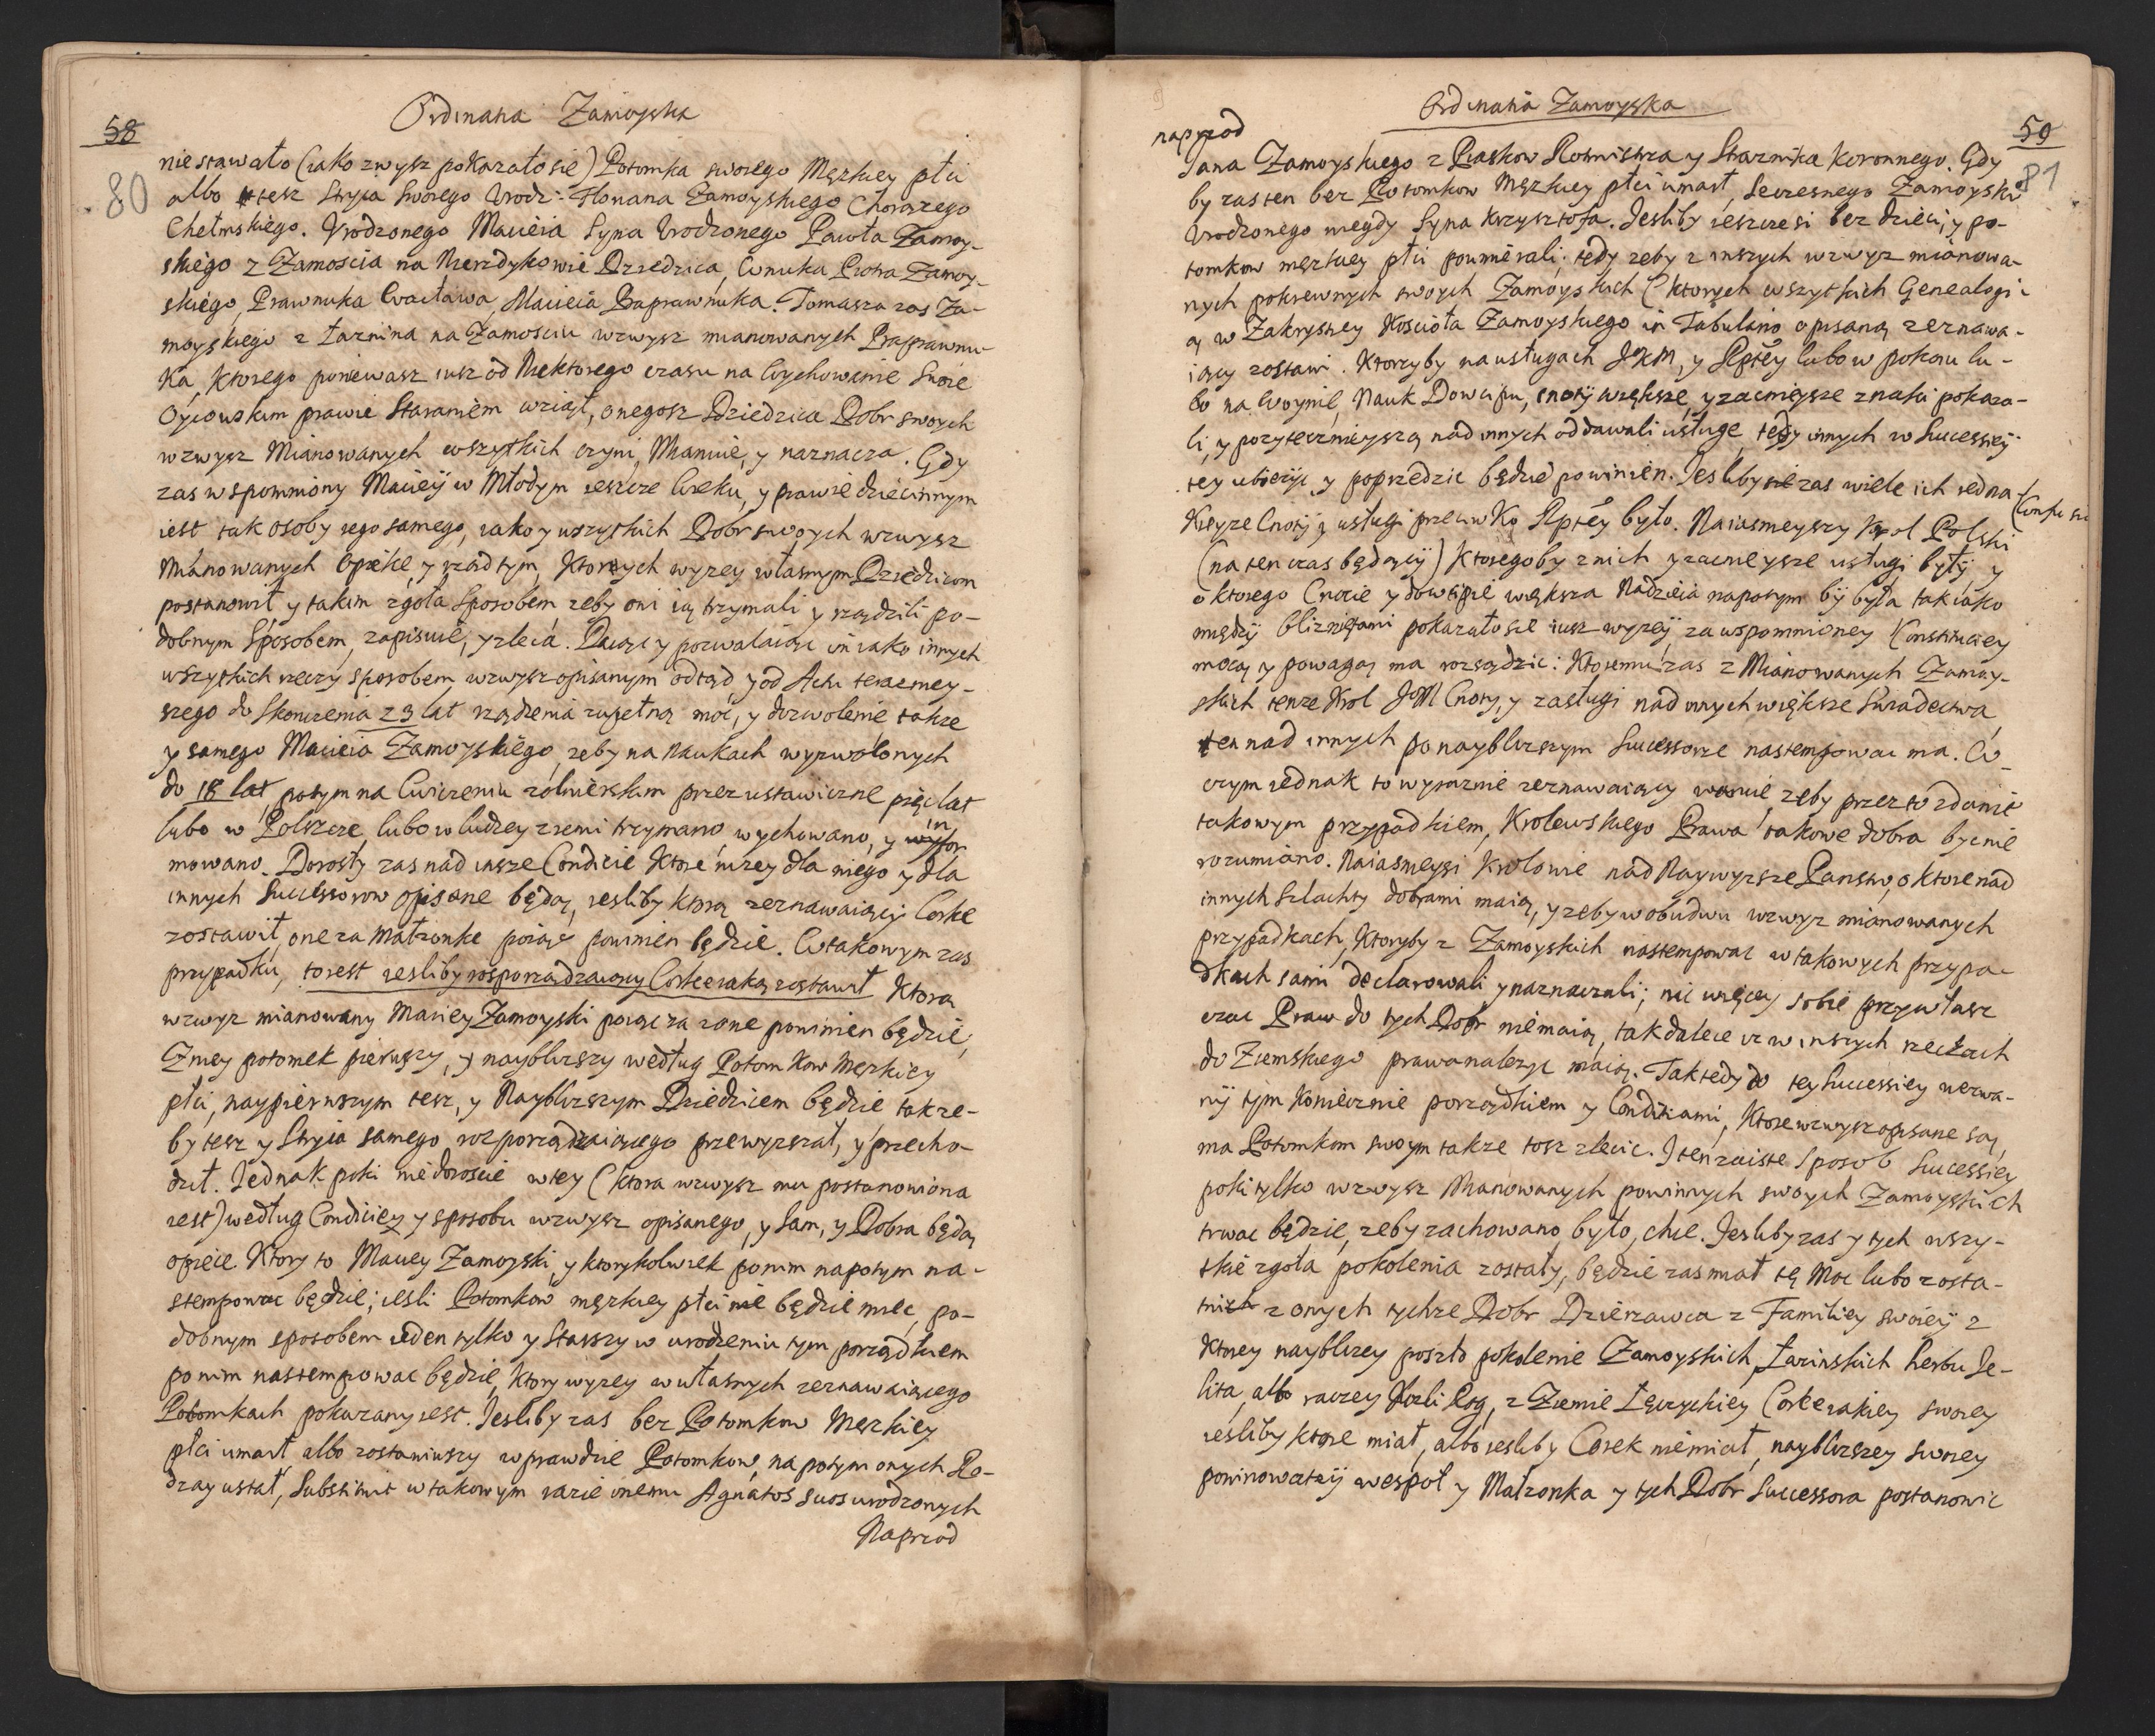 58
80
Ordinatia Zamoyska
niestawało (iako zwysz pokazałosie) Potomka swoiego Męzkiey płci
albo tesz Stryia Swoiego Urodz: Floriana Zamoyskiego Chorązego
Chełmskiego. Urodzonego Macieia Syna Urodzonego Pawła Zamoy-
skiego z Zamoscia na Dziedzica, Wnuka Piotra Zamoy-
skiego, Prawnuka Wacława, Macieia Praprawnuka. Tomasza zas Za-
moyskiego z Łaznina na Zamosciu wzwysz mianowanych Praprawnu-
ka, ktorego poniewasz iusz od Niektorego czasu na Wychowanie Swoie
Oycowskim prawie Staraniem wziął, onegosz Dziedzica Dobr swoych
wzwysz Mianowanych wszytkich czyni, Mianuie, y naznacza. Gdy
zas wspomniony Maciey w Młodym ieszcze Wieku, y prawie dziecinnym
iest tak osoby iego samego, iako y wszytkich Dobr swoych wzwysz
Mianowanych Opiekę, y rząd tym, Ktorych wyzey własnym Dziedzicom
postanowił y takim zgoła Sposobem zeby oni ią trzymali y rządzili po-
dobnym Sposobem, zapisuie, y zleca. Daiąc y pozwalaiąc im iako innych
wszytkich rzeczy sposobem wzwysz opisanym odtąd, y od Actu terazniey-
szego do Skonczenia 23 lat rządzenia zupełną moc, y dozwolenie, takze
y samego Macieia Zamoyskiego, zeby na Naukach wyzwolonych
do 18 lat, potym na Cwiczeniu zołnierskim przez ustawiczne pięć lat
lubo w Polszcze, lubo w ludzey ziemi trzymano, wychowano, y infor
mowano. Dorosły zas nad insze Condicie Ktore nizey dla niego y dla
innych Successorow opisane będą, iesliby ktorą zeznawaiący Corkę
zostawił, onę za Małzonkę poiąć powinien będzie. W takowym zas
przypadku, to iest iesliby rosporządzaiący Corkę iaką zostawił Ktorą
wzwyz mianowany Maciey Zamoyski poiąc za zonę powinien będzie,
Zniey potomek pierwszy, y naybliższy według Potomkow Męzkiey
płci, naypierwszym tesz, y Naybliszszym Dziedzicem będzie tak ze-
by tesz y Stryia samego rozporządzaiącego przewyzszał, y przecho-
dził. Jednak poki nie doroscie w tey (ktora wzwysz mu postanowiona
iest) według Condiciey y sposobu wzwysz opisanego, y Sam, y Dobra będą
opiece. Ktory to Maciey Zamoyski, y ktorykolwiek po nim napotym na-
stempowac będzie; iesli Potomkow męzkiey płci nie będzie miec, po-
dobnym sposobem ieden tylko y Starszy w urodzeniu tym porządkiem
po nim nastempowac będzie, ktory wyzey w własnych zeznawaiącego
Potomkach pokazany iest. Jesliby zas bez Potomkow Męzkiey
płci umarł albo zostawiwszy wprawdzie Potomkow, napotym onych Ro-
dzay ustał, Substituit w takowym razie onemu Agnatos suos urodzonych
Naprzod
Ordinatia Zamoyska
59
81
naprzod
Jana Zamoyskiego z Piaskow Rotmistrza y Straznika Koronnego. Gdy
by zas ten bez Potomkow Męzkiey płci umarł, Seczesnego Zamoyski
Urodzonego niegdy Syna Krzysztofa. Jesliby ieszcze si bez dzieci, y po-
tomkow męzkiey płci poumierali; tedy zeby z inszych wzwyz mianowa-
nych pokrewnych swoych Zamoyskich (ktorych wszytkich Genealogi-
ą w Zakrystey Koscioła Zamoyskiego in Tabulario opisaną zeznawa-
iący zostawi. Ktorzyby na usługach JKM, y Rptey lubo w pokoiu lu-
bo na Woynie, Nauk Dowcipu, cnoty większe, y zacnieysze znaki pokaza-
li, y pozytecznieyszą nad innych oddawali usługę, tedy innych w Successiey
tey ubiezyc, y poprzedzic będzie powinien. Jesliby zas wiele ich iedna-
Kieyze Cnoty y usługi przeciwko Rptey było. Naiasnieyszy Krol Polski
(na ten czas będący) Ktoregoby z nich y zacnieysze usługi były y
o ktorego Cnocie y dowcipie większa Nadzieia napotym by była tak iako
między blizniętami pokazałosie iusz wyzey, za wspomnioney Konstituciey
mocą y powagą ma rozsądzic: Ktoremu zas z Mianowanych Zamoy-
skich tenze Krol JM Cnoty, y zasługi nad innych większe Swiadectwa
ten nad innych po naybliszszym Successorze nastempowac ma. W
czym iednak to wyraznie zeznawaiący zeby przez to zdanie
takowym przypadkiem, Krolewskiego Prawa takowe dobra byc nie
rozumiano. Naiasnieysi Krolowie nad Naywyzsze Panstwo, ktore nad
innych Szlachty dobrami maią, y zeby w obudwu wzwyz mianowanych
przypadkach, Ktoryby z Zamoyskich nastempowac w takowych przypa-
dkach sami declarowali y naznaczali; nic więcey sobie przywłasz
czac Praw do tych Dobr niemaią, tak dalece iz w inszych rzeczach
do Ziemskiego prawa nalezyc maią. Tak tedy do tey Successiey wezwa-
ny tym Koniecznie porządkiem y Conditiami, Ktore wzwysz opisane są,
ma Potomkom swoym takze tosz zlecic. I ten zaiste Sposob Successiey
poki tylko wzwysz Mianowanych powinnych swoych Zamoyskich
trwac będzie, zeby zachowano było, chce. Jesliby zas y tych wszy-
tkie zgoła pokolenia zostały, będzie zas miał tę Moc lubo z osta-
tnich z onych tychze Dobr Dzierzawca z Familiey swoiey z
Ktorey naybliżey poszło pokolenie Zamoyskich, Łazinskich herbu Je-
lita, albo raczey Kozli Rog, z Ziemie Łęczyckiey Corce iakiey swoiey
iesliby ktore miał, albo iesliby Corek niemiał, naybliszszey swoiey
powinowatey wespoł y Małzonka y tych Dobr Successora postanowic